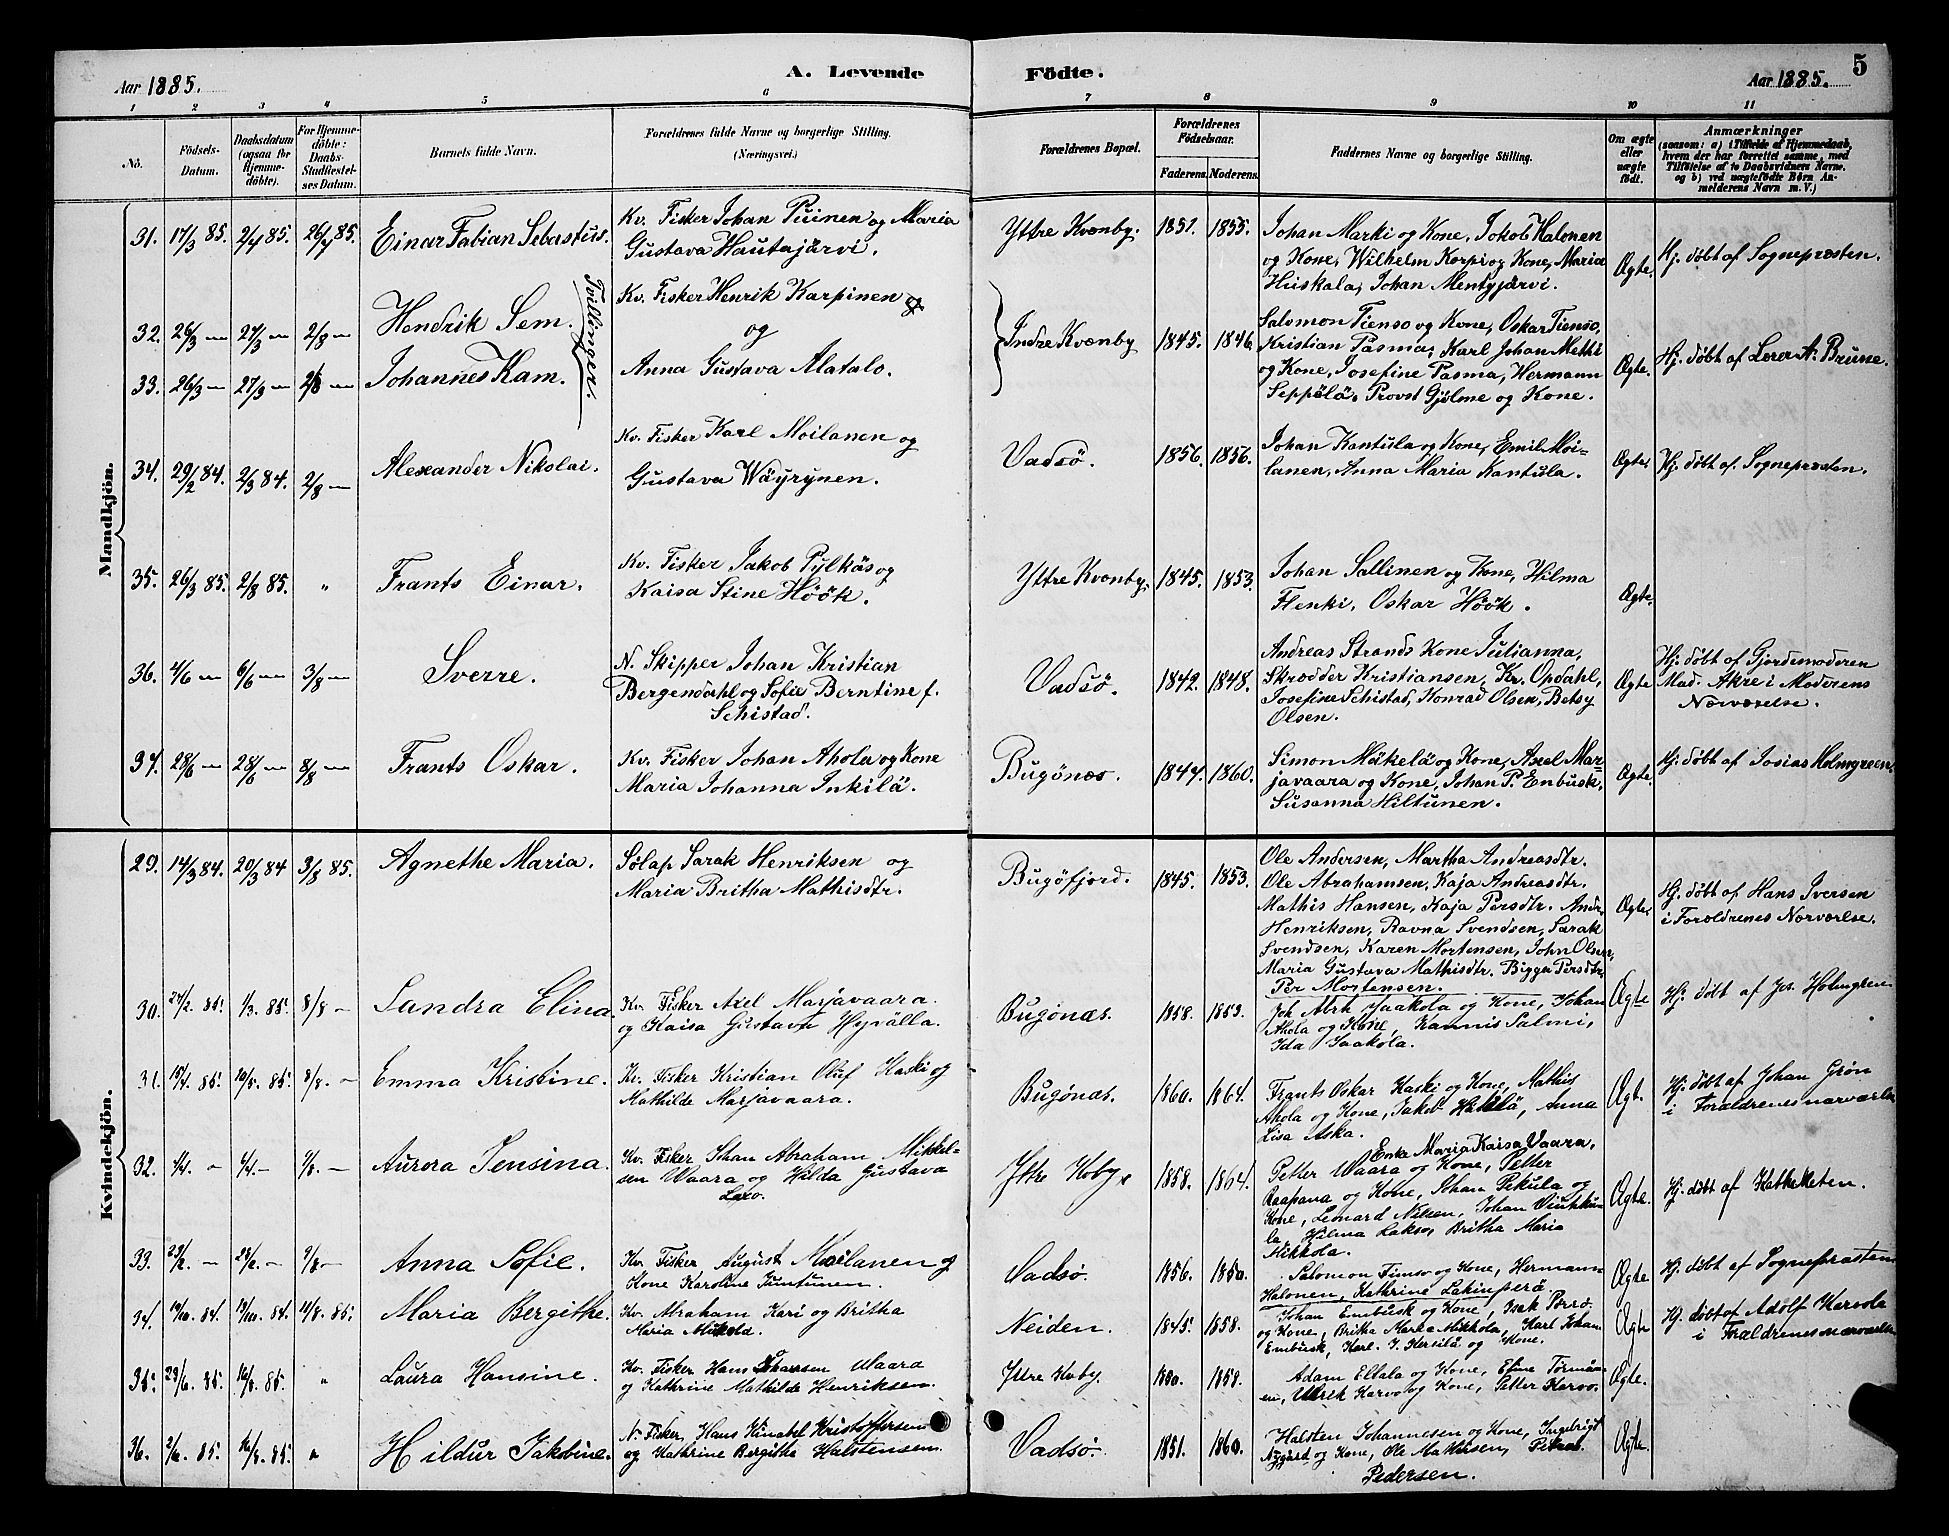 Aar 1885.
A. Levende
Födte.
Aar 1885.
5
1 2 3 4 5 6 7 8 9 10 11
No.
Födsels-
Datum.
Daabsdatum
(ogsaa for
Hjemme-
döbte).
For Hjemme-
döbte:
Daabs-
Stadfæstel-
ses Datum.
Barnets fulde Navn.
Forældrenes fulde Navne og borgerlige Stilling.
(Næringsvei.)
Forældrenes Bopæl.
Forældrenes
Födselsaar.
Faderens. Moderens.
Faddernes Navne og borgerlige Stilling.
Om ægte
eller
uægte
födt.
Anmærkninger
(saasom: a) i Tilfælde af Hjemmedaab,
hvem der har forrettet samme, med
Tilföielse af to Daabsvidners Navne,
og b) ved uægtefödte Börn An-
melderens Navn m. V.)
Mandkjön.
31. 17/3 85. 2/4 85. 26/4 85. Einar Fabian Sebastus.
Kv. Fisker Johan Puinen og Maria
Gustava Hautajärvi.
Yttre Kvænby. 1851. 1855.
Johan Marki og Kone, Jokob Halonen
og Kone, Wilhelm Korpi og Kone, Maria
Huskala, Johan Mentyjärvi.
Ægte. Hj. døbt af Sognepræsten.
32. 26/3 — 27/3 — 2/8 — Hendrik Sem.
33. 26/3 — 27/3 — 2/8 — Johannes Kam.
Tvillinger.
Kv. Fisker Henrik Karpinen og
og
Anna Gustava Alatalo.
Indre Kvænby 1845. 1846.
Salomon Tienso og Kone, Oskar Tienso,
Kristian Pasma, Karl Johan Methi
og Kone, Josefine Pasma, Hermann
Seppälä, Provst Gjølme og Kone.
Ægte. Hj. døbt af Lærer A. Brune.
34. 29/2 84. 2/3 84. 2/8 — Alexander Nikolai.
Kv. Fisker Karl Moilanen og
Gustava Wäyrynen.
Vadsø. 1856. 1856.
Johan Kantula og Kone, Emil Moi-
lanen, Anna Maria Kantula.
Ægte. Hj. døbt af Sognepræsten.
35. 26/3 85. 2/8 85. " Frants Einar.
Kv. Fisker Jakob Pylkäs og
Kaisa Stine Höök.
Yttre Kvænby, 1845. 1853.
Johan Sallinen og Kone, Hilma
Flenki, Oskar Höök.
Ægte.
36. 4/6 — 6/6 — 3/8 — Sverre.
N. Skipper Johan Kristian
Bergendahl og Sofie Berntine f.
Schistad.
Vadsø. 1842. 1848.
Andreas Strands Kone Julianna,
Skrødder Kristiansen, Kr. Opdahl,
Josefine Schistad, Konrad Olsen, Betsy
Olsen.
Ægte
Hj. døbt af Gjordemoderen
Mad. Akre i Moderens
Nærværelse.
37. 28/6 — 28/6 — 8/8 — Frants Oskar.
Kv. Fisker Johan Ahola og Kone
Maria Johanna Inkilä.
Bugönæs. 1847. 1860.
Simon Mäkelä og Kone, Axel Mar-
javaara og Kone, Johan P. Enbusk,
Susanna Hiltunen.
Ægte. Hj. døbt af Josias Holmgreen.
Kvindekjön.
29. 14/3 84. 20/3 84 3/8 85. Agnethe Maria.
Sølap Sarak Henriksen og
Maria Britha Mathisdtr.
Bugöfjord. 1845. 1853.
Ole Andersen, Martha Andreasdtr.
Ole Abrahamsen, Kaja Andreasdtr.
Mathis Hansen, Kaja Persdtr. Andr.
Henriksen, Ravna Svendsen, Sarak
Svendsen, Karen Mortensen, John Olsen,
Maria Gustava Mathisdtr. Bigga Persdtr.
Per Mortensen.
Ægte.
Hj. døbt af Hans Iversen
i Foroldrenes Nærværelse.
30. 24/2. 85. 1/3. 85. 8/8 — Sandra Elina
Kv. Fisker Axel Marjavaara.
og Kaisa Gustava Hyvälla.
Bugønæs. 1858. 1853.
Joh Abrh Jaakola og Kone, Johan
Ahola og Kone, Hannis Salmi,
Ida Jaakola.
Ægte Hj. døbt af Jos. Holmgren
31. 15/4. 85. 10/5. 85. 8/8. — Emma Kristine.
Kv. Fisker Kristian Oluf Haski og
Mathilde Marjavaara.
Bugønæs. 1860. 1864.
Frants Oskar Haski og Kone, Mathis
Ahola og Kone, Jakob Hakilä, Anna
Lisa Aska.
Ægt.
Hj. døbt af Johan Grøn
i Forældrenes nærværelse
32. 1/4. — 4/4. — 9/8. — Aurora Jensina.
Kv. Fisker Johan Abraham Mikkel-
sen Waara og Hilda Gustava
Laxo.
Yttre Kvby. 1858. 1864.
Enke Maria Kaisa Vaara,
Petter Waara og Kone, Petter
Raapana og Kone, Johan Pekula og
Kone, Leonard Nilsen, Johan Viuhku-
la, Hilma Lakso, Britha Maria
Mikkola.
Ægte. Hj. døbt af Katheketen.
33. Anna Sofie.
Kv. Fisker August Moilanen og
Kone Karoline Juntunen.
Vadsø. 1856. 1850.
Salomon Tinso og Kone, Hermann
Halonen, Kathrine Lakinperä.
Ægte Hj. døbt af Sognepræsten
34. 19/10. 84. 19/10. 84. 14/8. 85. Maria Bergithe.
Kv. Abraham Kari og Britha
Maria Mikola.
Neiden. 1845. 1858.
Johan Enbusk og Kone, Isak Porro
og Kone, Britha Marka Mikkola, Karl Johan
Enbusk, Karl. J. Kersilä og Kone.
Ægte
Hj. døbt af Adolf Karvola
i Forældrenes nærværelse
35. 23/6. 85. 16/8. 85. " Laura Hansine.
Kv. Fisker Hans Johansen Waara
og Kathrine Mathilde Henriksen.
Yttre Kvby. 1860. 1858.
Adam Eltala og Kone, Eline Törmän-
en, Ulrik Karvo og Kone, Petter Karvo.
Ægte.
36. 2/6. 85. 16/8. 85. " Hildur Jakobine.
N. Fisker, Hans Kinabel Kristoffersen
og Kathrine Bergithe Halstensen.
Vadsø. 1851. 1860.
Halsten Johannesen og Kone, Ingebrigt
Nygård og Kone, Ole Mathisen, Petra
Pedersen.
Ægte.